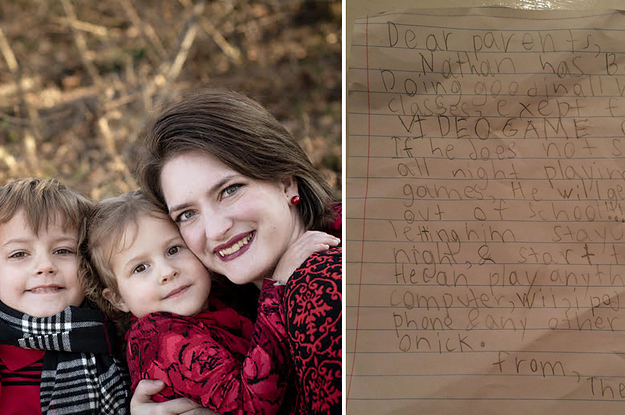 Dear parents,
Nathan has B
Doing good in all
classes exept f
VIDEO GAME
If he does not s
all night playin
games. He will ge
out of school!!!
letting him stay u
night, & start
He can play anyth
computer, wii, i pod
phone & any other
onick.
from, The